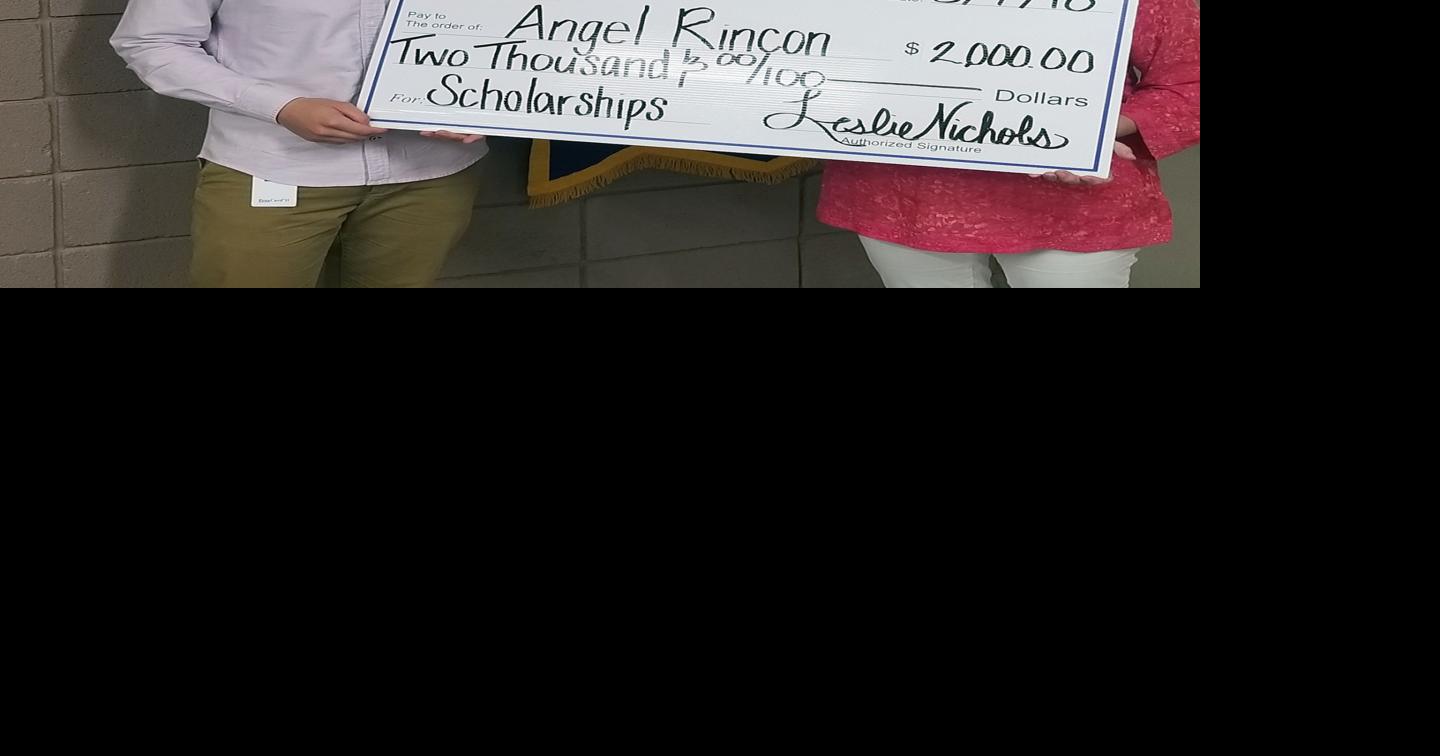 Pay to
The order of: Angel Rincon $ 2,000.00
Two Thousand & 00/100 Dollars
For: Scholarships Leslie Nichols
Authorized Signature